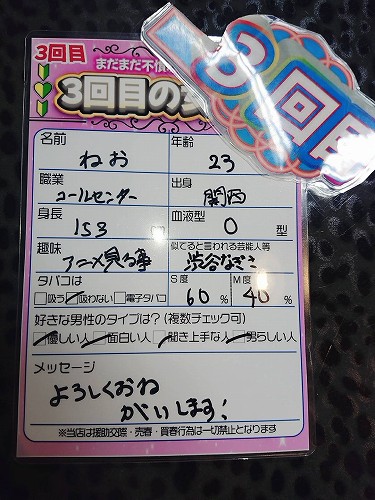 3回目
まだまだ不慣
3回目の
3回目
名前
ねお
年齢
23
職業
コールセンター
出身
関西
身長
153
血液型
O 型
趣味
アニメ見る事
似てると言われる芸能人等
渋谷なぎさ
タバコは
□吸う □吸わない □電子タバコ
S度
60 %
M度
40 %
好きな男性のタイプは?(複数チェック可)
□優しい人 □面白い人 □聞き上手な人 □男らしい人
メッセージ
よろしくおね
がいします!
※当店は援助交際・売春・買春行為は一切禁止となります